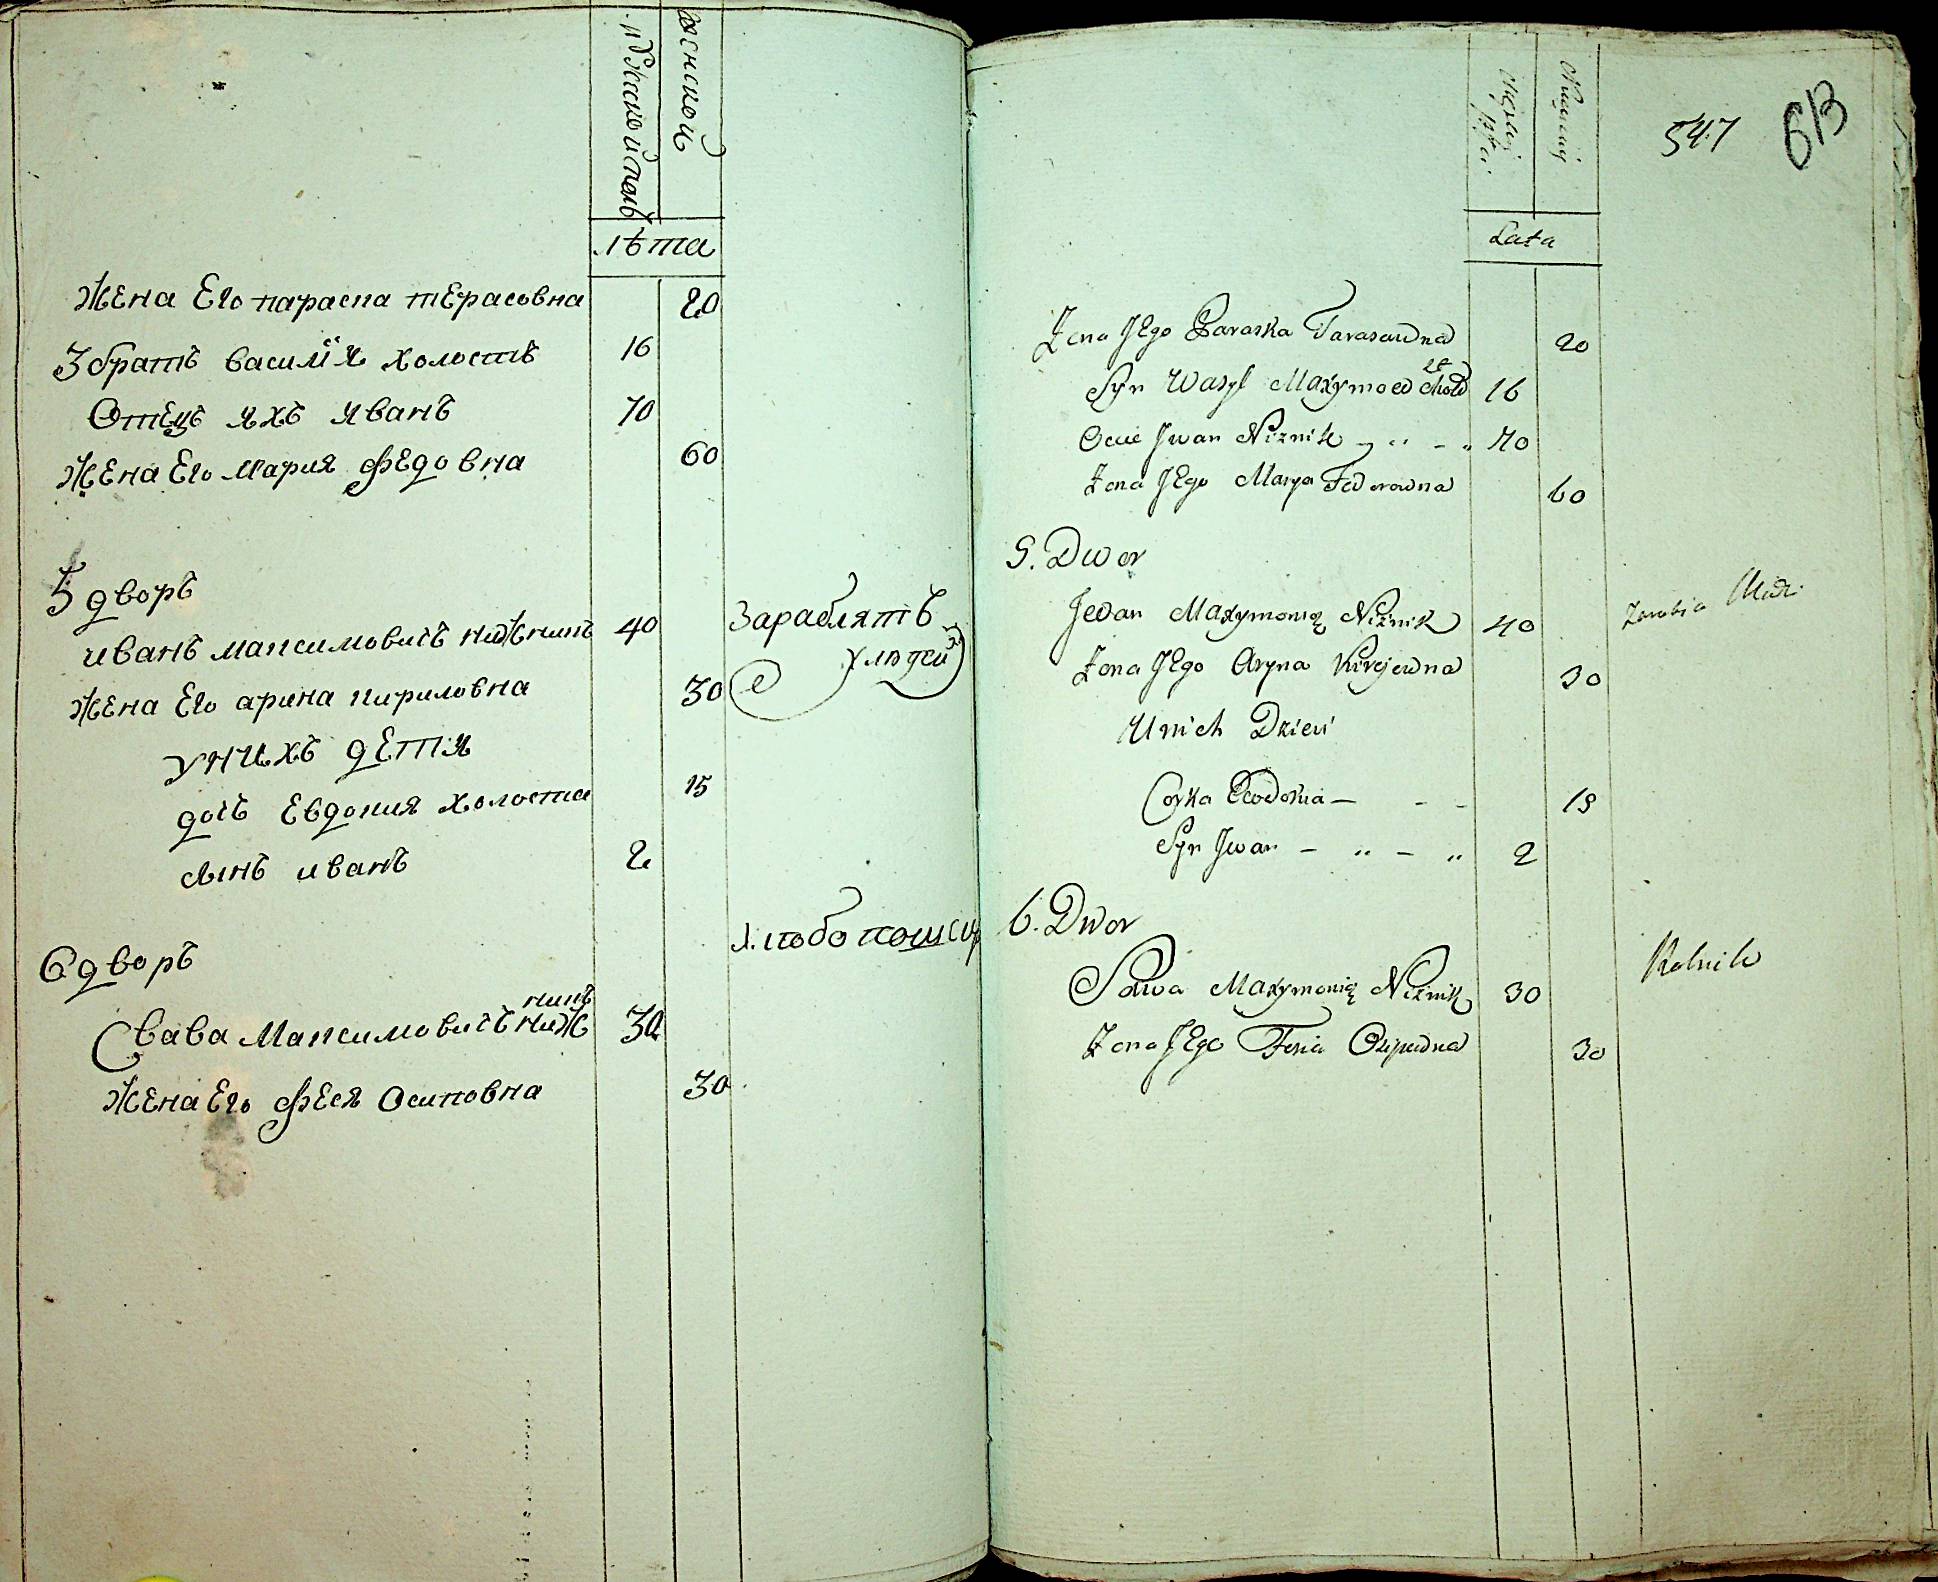 мужской полъ
женской
лѣта
Жена Его параска тЕрасовна 20
3 братъ василїй холостъ 16
Отецъ ихъ иванъ 70
Жена Его Мария ФЕдовна 60
5 дворъ
иванъ максимовичъ нижникъ 40 Зараблятъ
у людей
Жена Его арина кириловна 30
у нихъ дЕти
дочъ Евдокия холоста 15
сынъ иванъ 2
6 дворъ хлѣбопашецъ
никъ
Сава Максимовичъ ниж 30
Жена Его ФЕся Осиповна 30
547 613
Męzkiey płci
Lata
Żona JEgo Paraska Tarasowna 20
Syn Wasyl Maxymow 16
Ociec Jwan Niznik 70
Żona JEgo Marya Fedorowna 60
5. Dwor
Jwan Maxymowicz Niznik 40 Zarabia
Żona JEgo Aryna Kirejewna 30
U nich Dzieci
Corka Ewdokia 15
Syn Jwan 2
6. Dwor
Sawa Maxymowicz Niznik 30 Rolnik
Żona JEgo Fesia Osipowna 30